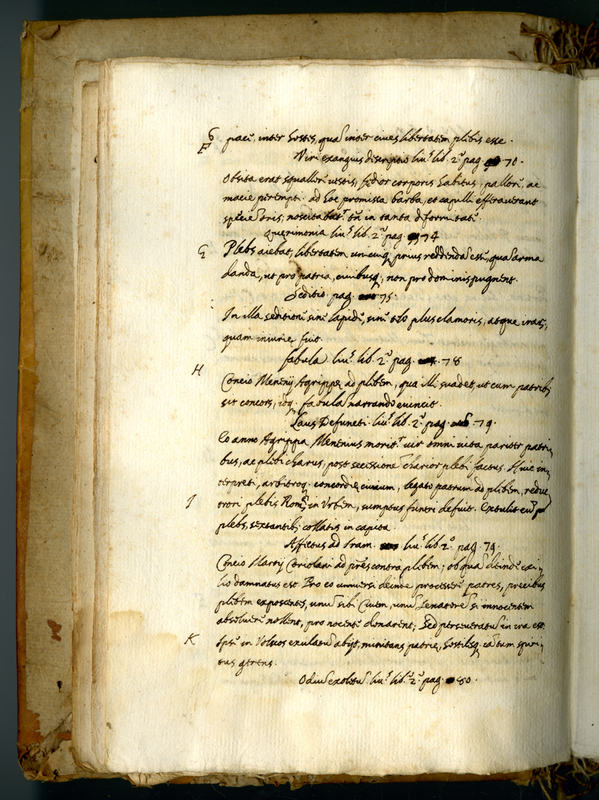 G paci, inter hostis, qua inter ciues libertatem plebis esse.
F
Viri exanguis descriptio liu. lib. 2. pag. 70.
Obsita erat squallore uestis, fedior corporis habitus, pallore, ac
macie perempti. ad hoc promissa barba, et capilli efferauerant
speciē oris; noscitabat. tn. in tanta deformitate.
Querimonia liu. lib. 2. pag. 74
G Plebs aiebat, libertatem unicuiq prius reddendā esse, quā arma
danda, ut pro patria, ciuibusq, non pro dominis pugnent.
Seditio. pag. 75.
In illa seditione sine lapide, sine telo plus clamoris, atque irarū,
quam iniurie fuit.
fabula liu. lib. 2. pag. 78
H Concio Menenij Agrippe ad plebem, qua illi suadet, ut cum patribus
sit concors, idq. fabula narrando euincit.
Laus Defuncti. liu. lib. 2. pag. 79.
Eo anno Agrippa Menenius morit. uir omni uita pariter patri
bus, ac plebi charus, post secessionē charior plebi factus. Huic in
terpreti, arbitroq. concordie ciuium, legato patrum ad plebem, reduc
I tori plebis Rom. in Vrbem, sumptus funeri defuit. Extulit eū
plebs, sextantib. collatis in capita.
Affectus ad iram. liu. lib. 2. pag. 79.
Concio Martij Coriolani ad pres contra plebem; ob quā deinde exi
lio damnatus est. Pro eo uniuersi deinde processere patres, precibus
plebem exposcentes, unū sibi Ciuem, unū Senatorē si innocentem
absoluere nollent, pro nocente donarent; Sed perseueratū in ira est
K Ipse in Volscos exulatū abijt, minitans patrie, hostilesq. iā tum spiri
tus gerens.
Odiū exoletū. liu. lib. 2. pag. 80.